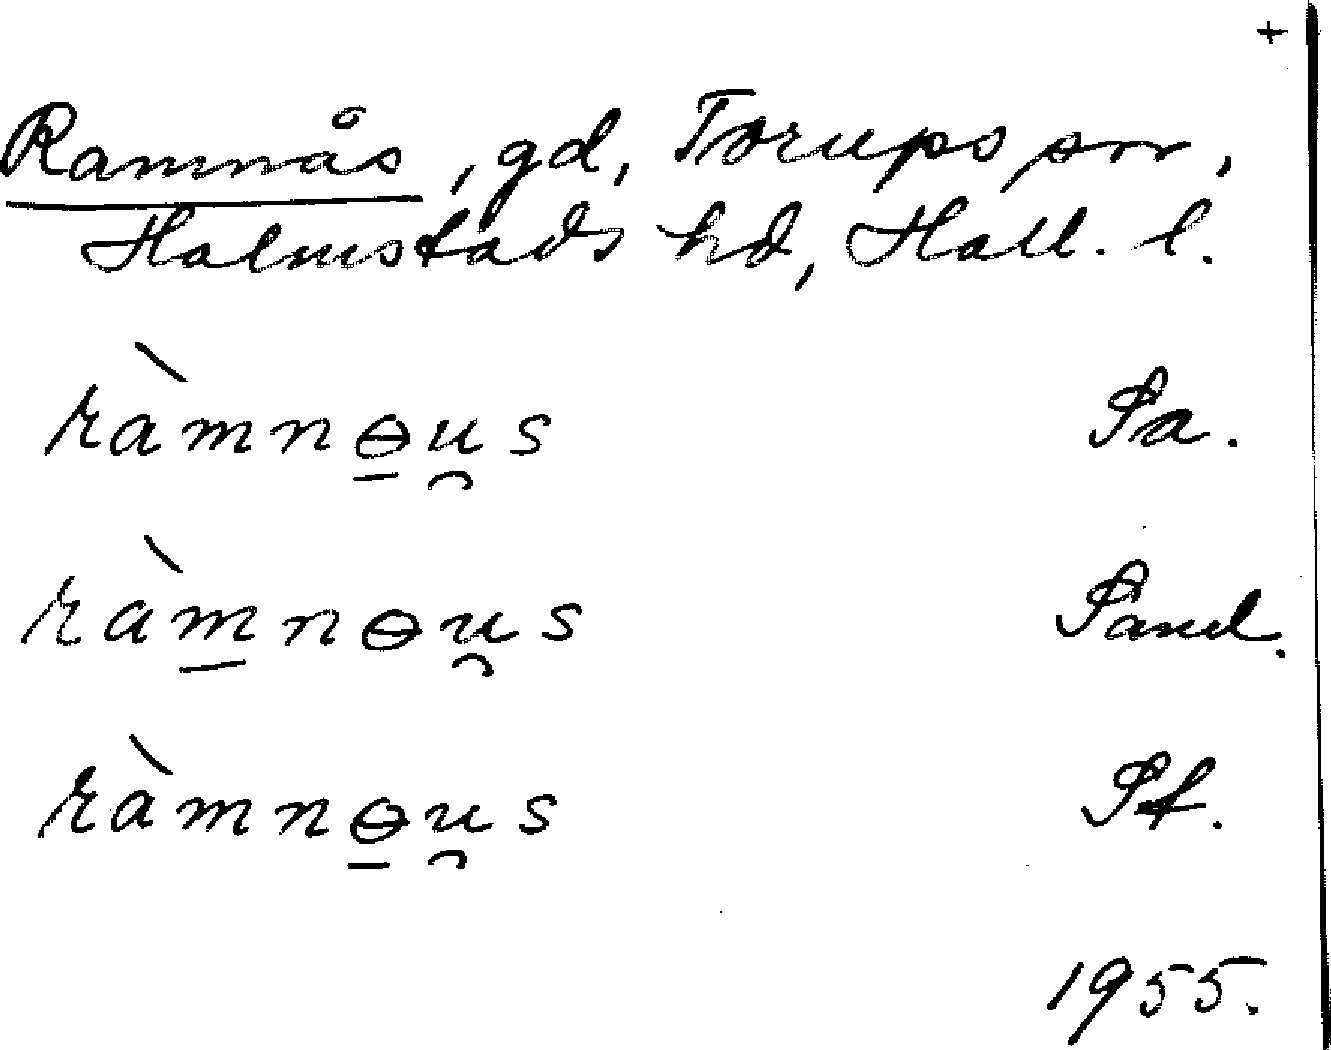 +
Ramnås, gd, Torups sn,
Holmstads hd, Hall. l.
ràmnɵu̯s Sa.
ràmnɵu̯s Sand.
ràmnɵu̯s Sf.
1955.